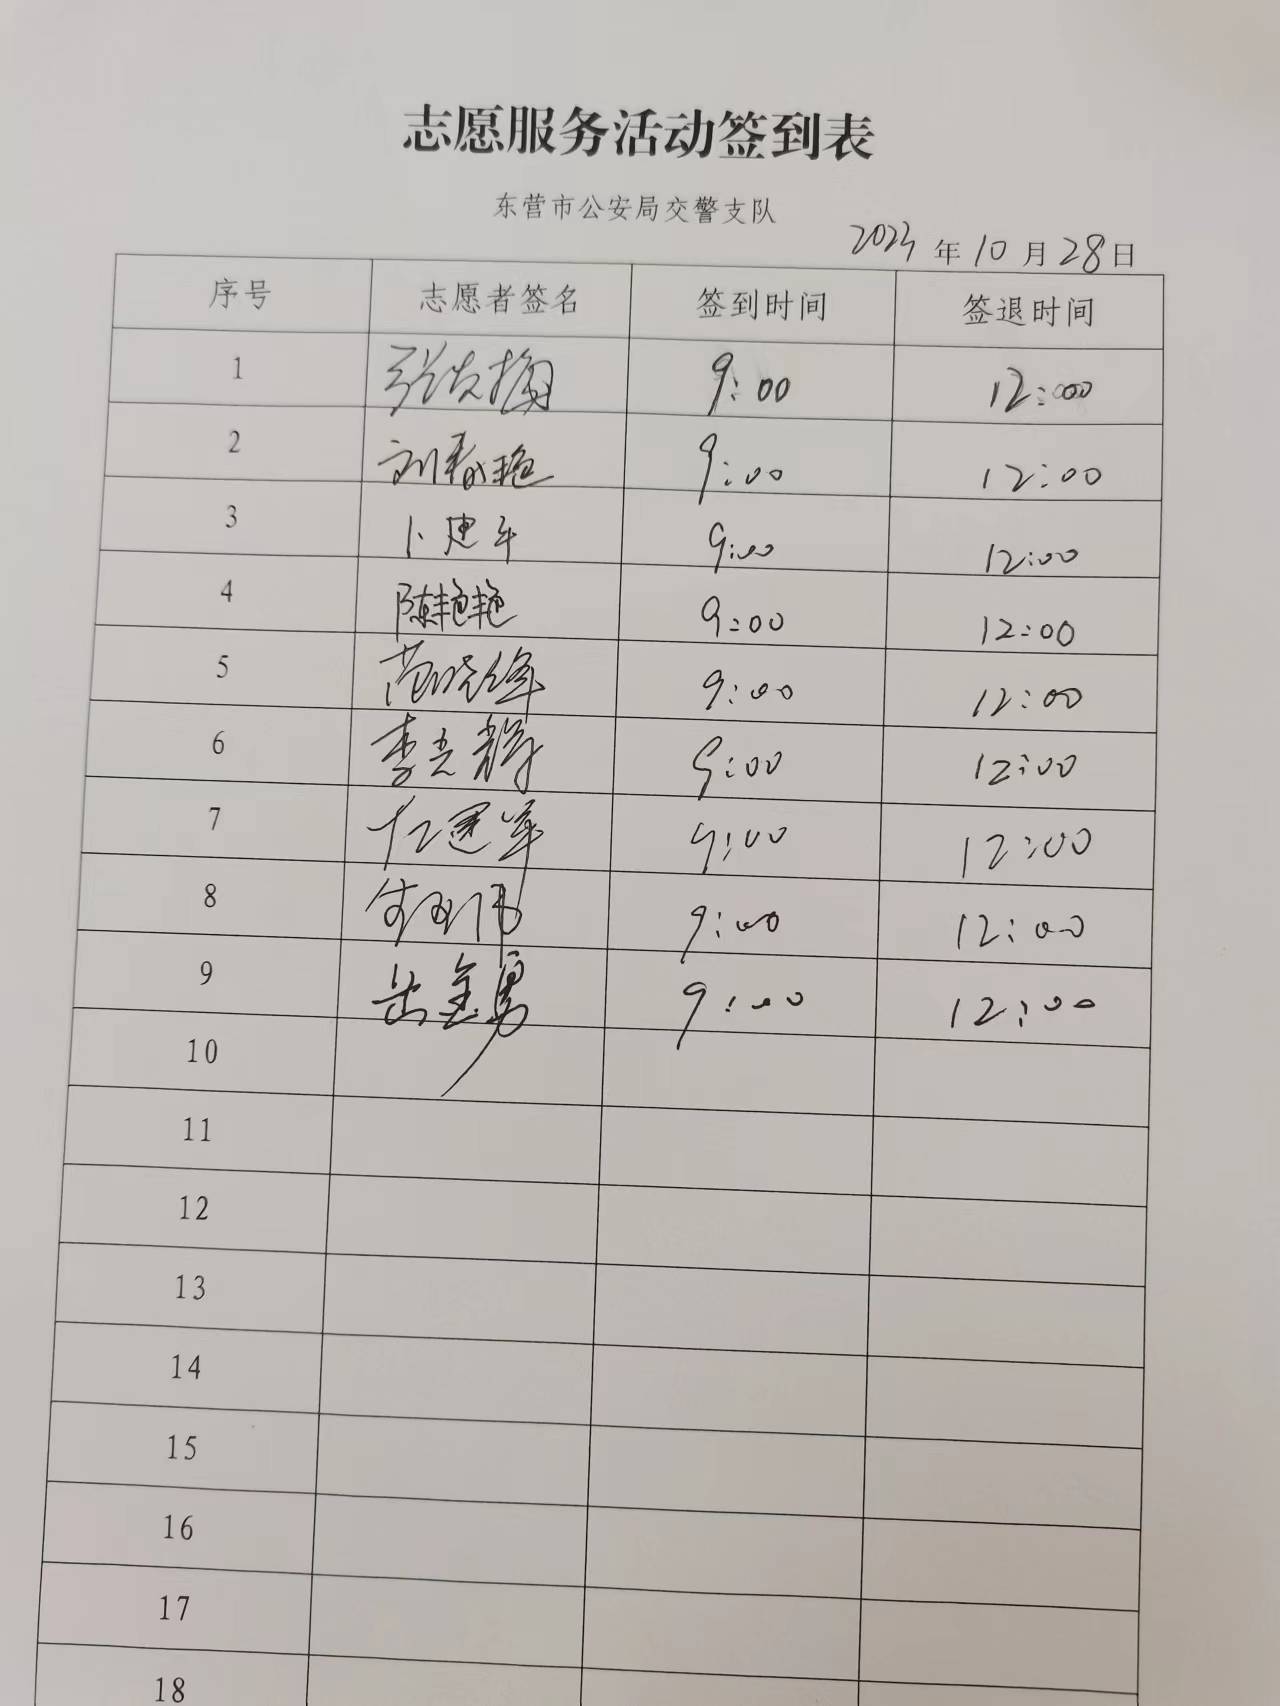 志愿服务活动签到表
东营市公安局交警支队
2023年10月28日
序号 志愿者签名 签到时间 签退时间
1 9:00 12:00
2 刘春艳 9:00 12:00
3 卜建军 9:00 12:00
4 陈艳艳 9:00 12:00
5 范晓峰 9:00 12:00
6 李光辉 9:00 12:00
7 任建军 9:00 12:00
8 9:00 12:00
9 岳金勇 9:00 12:00
10
11
12
13
14
15
16
17
18